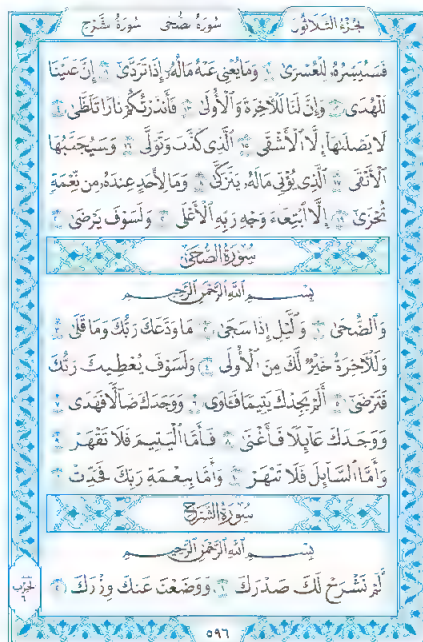 الجزء الثلاثون سورة الضحى سورة الشرح
فَسَنُيَسِّرُهُۥ لِلْعُسْرَىٰ ١٠ وَمَا يُغْنِى عَنْهُ مَالُهُۥٓ إِذَا تَرَدَّىٰٓ ١١ إِنَّ عَلَيْنَا
لَلْهُدَىٰ ١٢ وَإِنَّ لَنَا لَلْءَاخِرَةَ وَٱلْأُولَىٰ ١٣ فَأَنذَرْتُكُمْ نَارًا تَلَظَّىٰ ١٤
لَا يَصْلَىٰهَآ إِلَّا ٱلْأَشْقَى ١٥ ٱلَّذِى كَذَّبَ وَتَوَلَّىٰ ١٦ وَسَيُجَنَّبُهَا
ٱلْأَتْقَى ١٧ ٱلَّذِى يُؤْتِى مَالَهُۥ يَتَزَكَّىٰ ١٨ وَمَا لِأَحَدٍ عِندَهُۥ مِن نِّعْمَةٍ
تُجْزَىٰٓ ١٩ إِلَّا ٱبْتِغَآءَ وَجْهِ رَبِّهِ ٱلْأَعْلَىٰ ٢٠ وَلَسَوْفَ يَرْضَىٰ ٢١
سُورَةُ الضُّحَىٰ
بِسْمِ ٱللَّهِ ٱلرَّحْمَٰنِ ٱلرَّحِيمِ
وَٱلضُّحَىٰ ١ وَٱلَّيْلِ إِذَا سَجَىٰ ٢ مَا وَدَّعَكَ رَبُّكَ وَمَا قَلَىٰ ٣
وَلَلْءَاخِرَةُ خَيْرٌ لَّكَ مِنَ ٱلْأُولَىٰ ٤ وَلَسَوْفَ يُعْطِيكَ رَبُّكَ
فَتَرْضَىٰٓ ٥ أَلَمْ يَجِدْكَ يَتِيمًا فَـَٔاوَىٰ ٦ وَوَجَدَكَ ضَآلًّا فَهَدَىٰ ٧
وَوَجَدَكَ عَآئِلًا فَأَغْنَىٰ ٨ فَأَمَّا ٱلْيَتِيمَ فَلَا تَقْهَرْ ٩
وَأَمَّا ٱلسَّآئِلَ فَلَا تَنْهَرْ ١٠ وَأَمَّا بِنِعْمَةِ رَبِّكَ فَحَدِّثْ ١١
سُورَةُ الشَّرْحِ
بِسْمِ ٱللَّهِ ٱلرَّحْمَٰنِ ٱلرَّحِيمِ
أَلَمْ نَشْرَحْ لَكَ صَدْرَكَ ١ وَوَضَعْنَا عَنكَ وِزْرَكَ ٢
الحزب ٦٠
٥٩٦